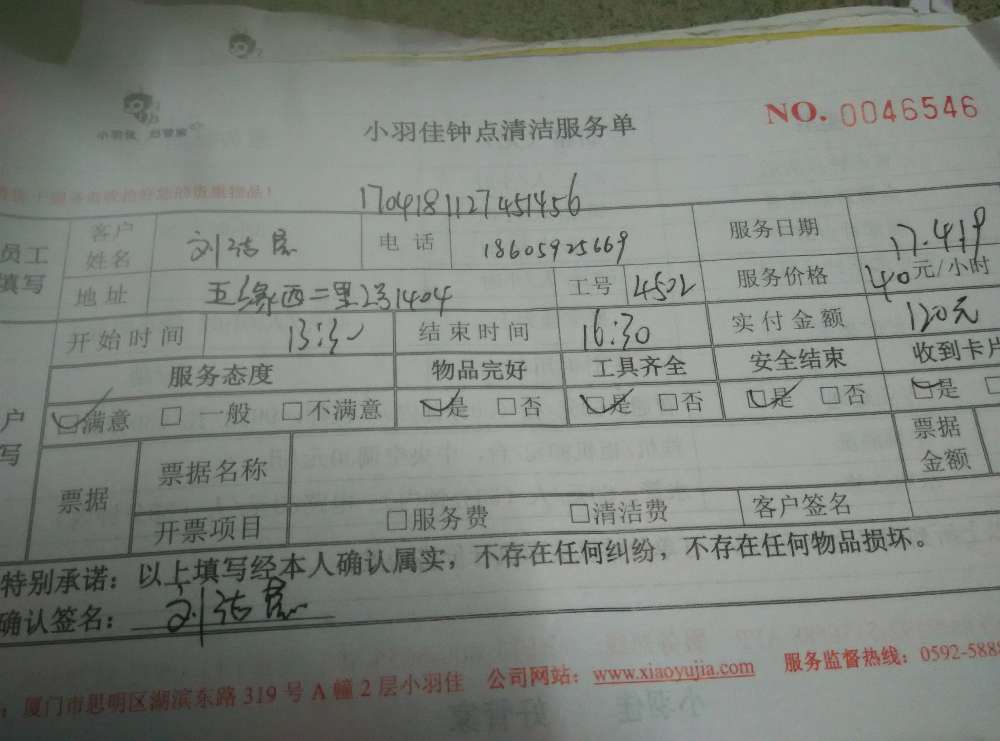 小羽佳 好管家
小羽佳钟点清洁服务单
NO. 0046546
1704181127451456
员工填写 客户姓名 刘 电话 18605925669 服务日期 17.4.19
地址 五缘西二里23 1404 工号 4502 服务价格 40元/小时
开始时间 13:30 结束时间 16:30 实付金额 120元
服务态度 物品完好 工具齐全 安全结束 收到卡片
户写 ☑满意 □一般 □不满意 ☑是 □否 ☑是 □否 ☑是 □否 ☑是
票据 票据名称 票据金额
开票项目 □服务费 □清洁费 客户签名
特别承诺：以上填写经本人确认属实，不存在任何纠纷，不存在任何物品损坏。
确认签名： 刘
：厦门市思明区湖滨东路 319 号 A 幢 2 层小羽佳 公司网站：www.xiaoyujia.com 服务监督热线：0592-5888